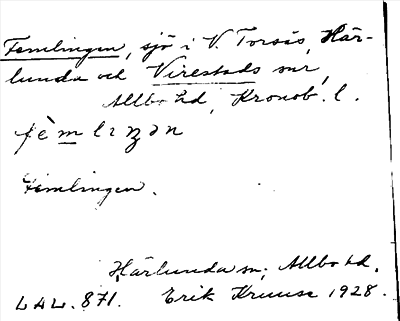 Femlingen, sjö i V. Torsås, Här-
lunda och Virestads snr,
Allbo hd, Kronob. l.
fèmlɪŋən
Femlingen.
Härlunda sn, Allbo hd.
LAL. 871. Erik Kruuse 1928.